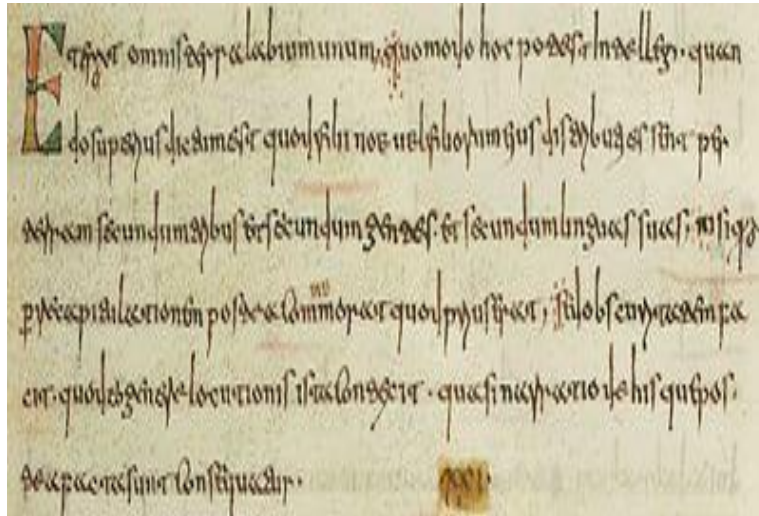 Et erat omnis terra labium unum, quomodo hoc potest intellegi. quan
do superius dictum est quod filii noe uel filiorum eius distributi essent per
terram secundum tribus et secundum gentes. et secundum linguas suas, nisi q
p recapitulationem postea commorat quod prius erat, sed obscuritatem fa
cit. quod eo genere locutionis ista contexit. quasi narratio de his que pos
tea facta sunt consequatur.